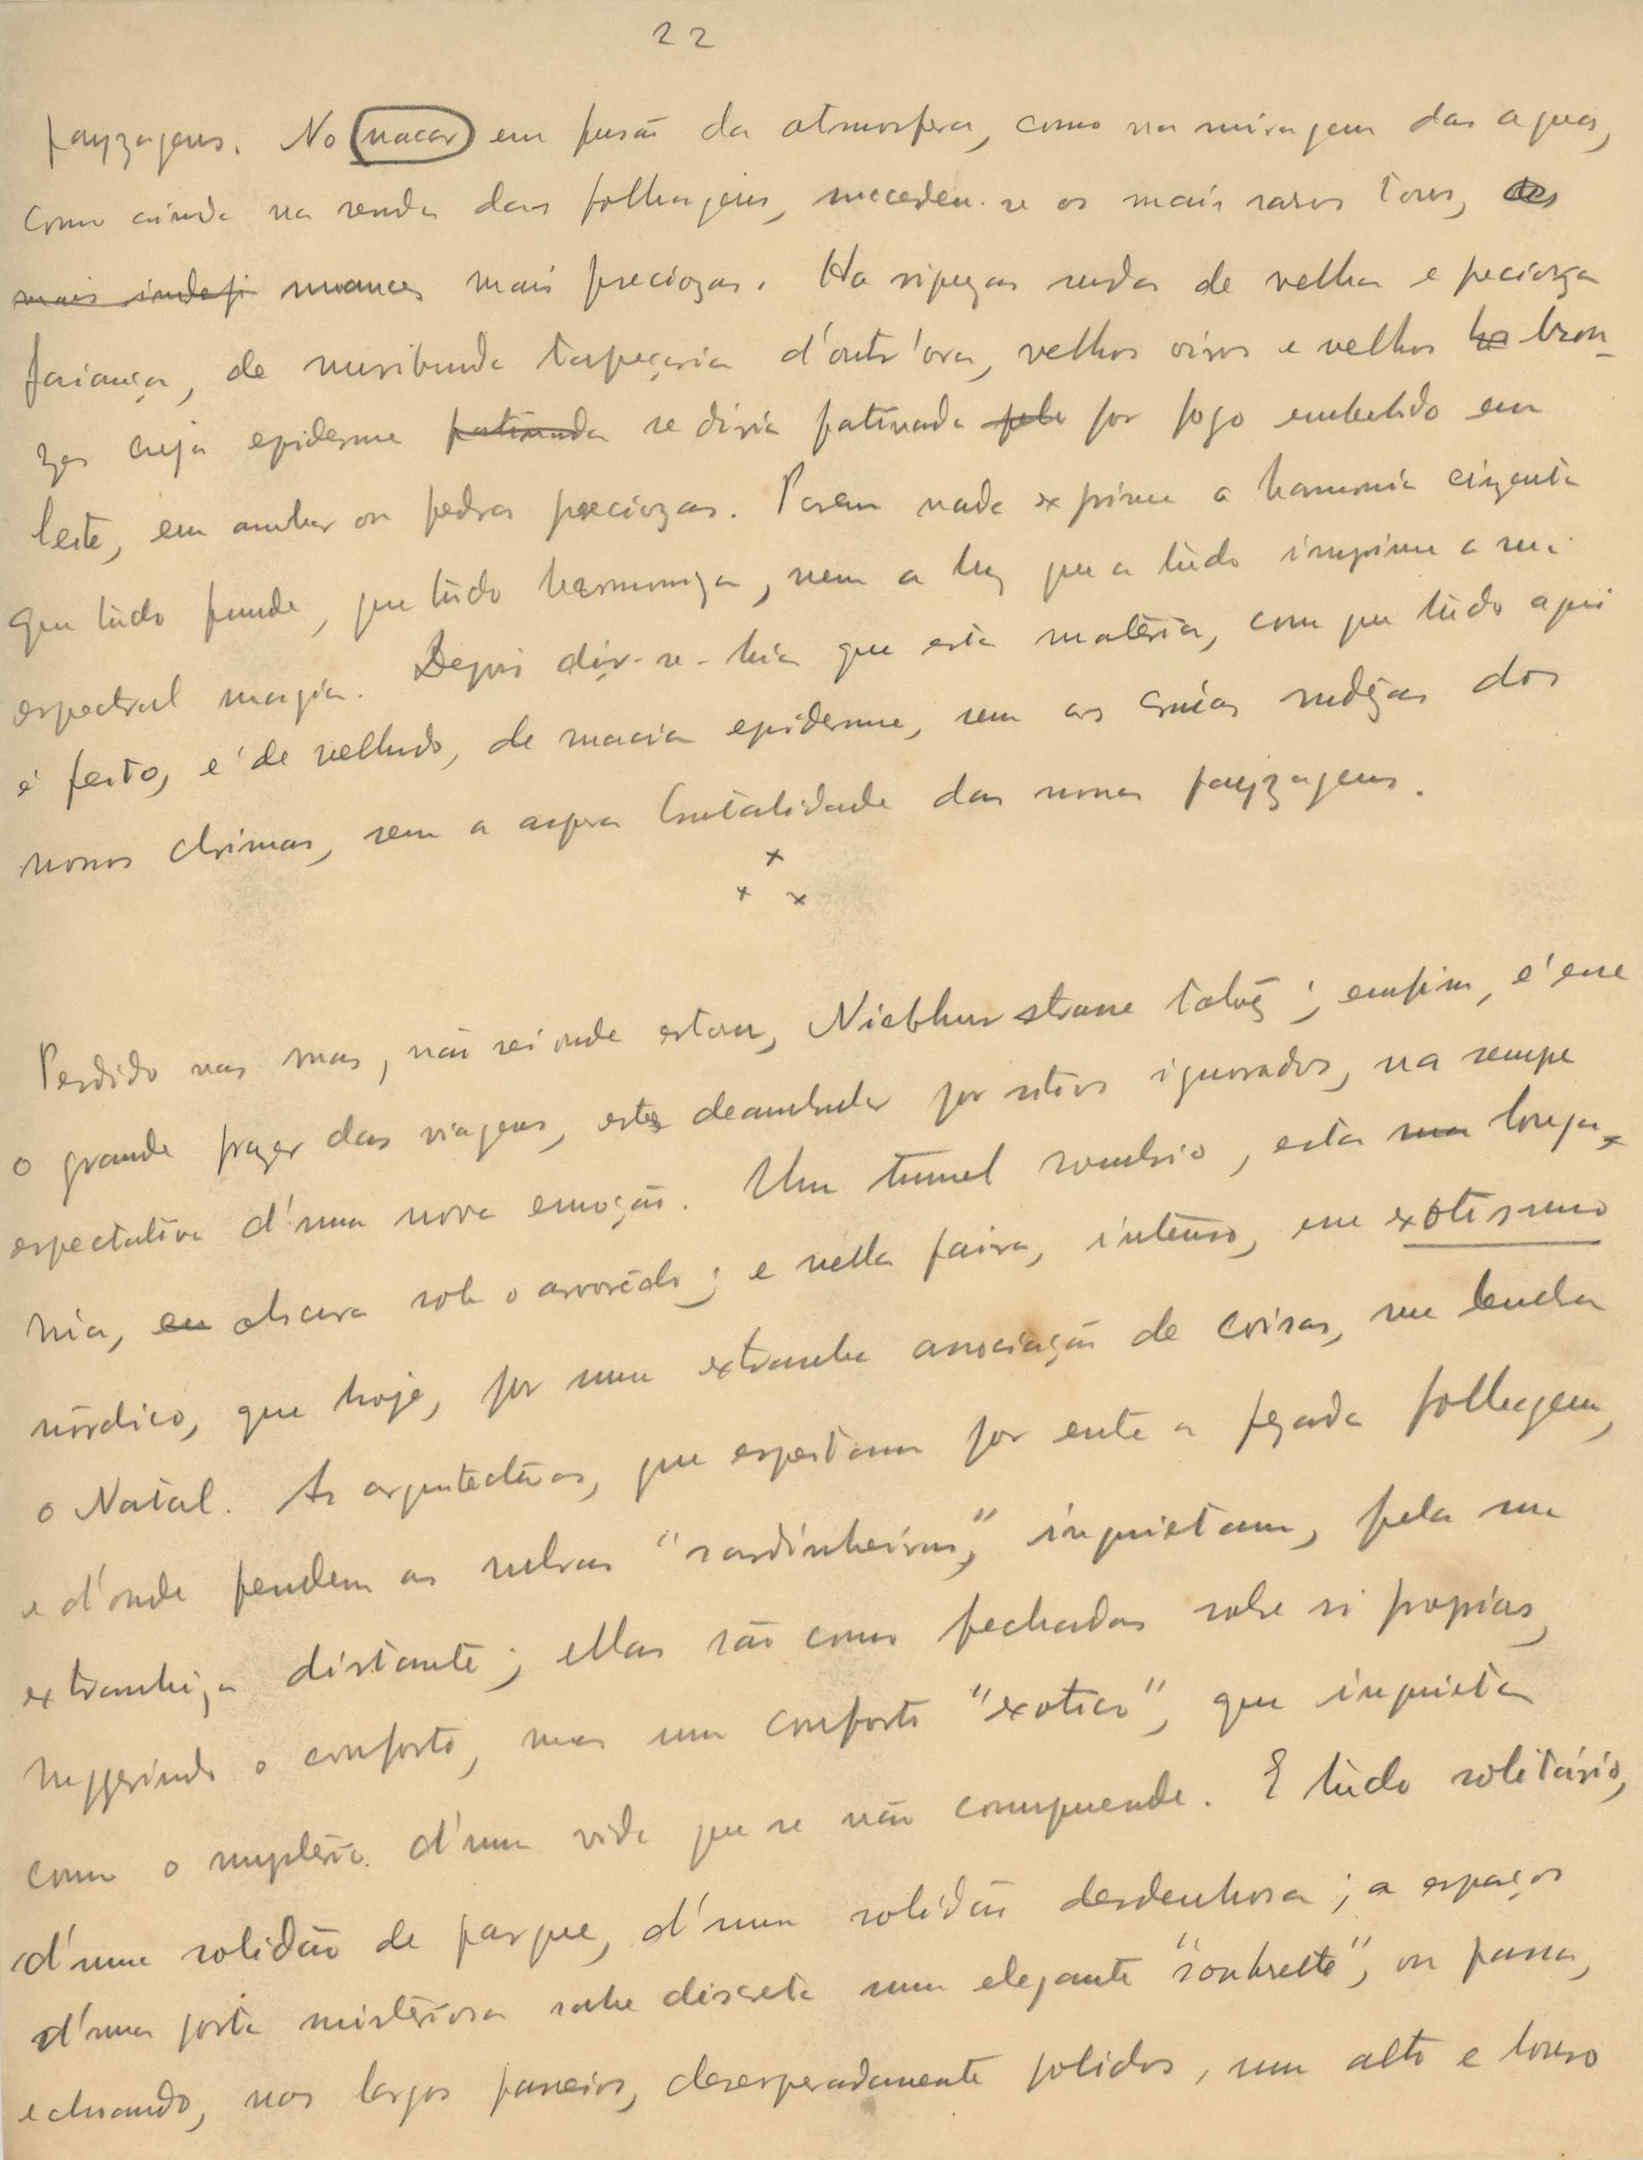 22
payzagens. No nacar em fusão da atmosfera, como na miragem das aguas,
como ainda na renda das folhagens, succedem-se os mais raros tons, as
mais indefi nuances mais preciozas. Ha sipegas sedas de velha e preciosa
faiança, de muribunda tapeçaria d'outr'ora, velhos oiros e velhos bron-
zes cuja epiderme patinada se diria patinada pelo por fogo embebido em
leite, em ambar ou pedras preciozas. Porem nada exprime a harmonia cinzenta
que túdo funde, que túdo harmoniza, nem a luz que a túdo imprime a sua
espectral magia. Depois dir-se-hia que esta matéria, com que túdo aqui
é feito, é de velludo, de macia epiderme, sem as cruas rudêzas dos
nossos climas, sem a aspera brutalidade das nossas payzagens.
x
x x
Perdido nas ruas, não sei onde estou, Niebhur strasse talvêz; emfim, é esse
o grande prazer das viagens, este deambular por sitios ignorados, na sempre
espectativa d'uma nova emoção. Um tunnel sombrio, esta rua longa,
nua, em obscura sob o arvorêdo; e nella paira, intenso, esse exotismo
nórdico, que hoje, por uma extranha associação de coisas, me lembra
o Natal. As arquitecturas, que espreitam por entre a pezada folhagem,
e d'onde pendem as rubras "sardinheiras", inquietam, pela sua
extranhêza distante; ellas são como fechadas sobre si proprias,
suggerindo o conforto, mas um conforto "exotico", que inquieta
como o mysterio d'uma vida que se não comprehende. E túdo solitário,
d'uma solidão de parque, d'uma solidão desdenhosa; a espaços
d'uma porta misteriosa sahe discreta uma elegante "soubrette", ou passa,
echoando, nos largos passeios, desesperadamente polidos, um alto e louro